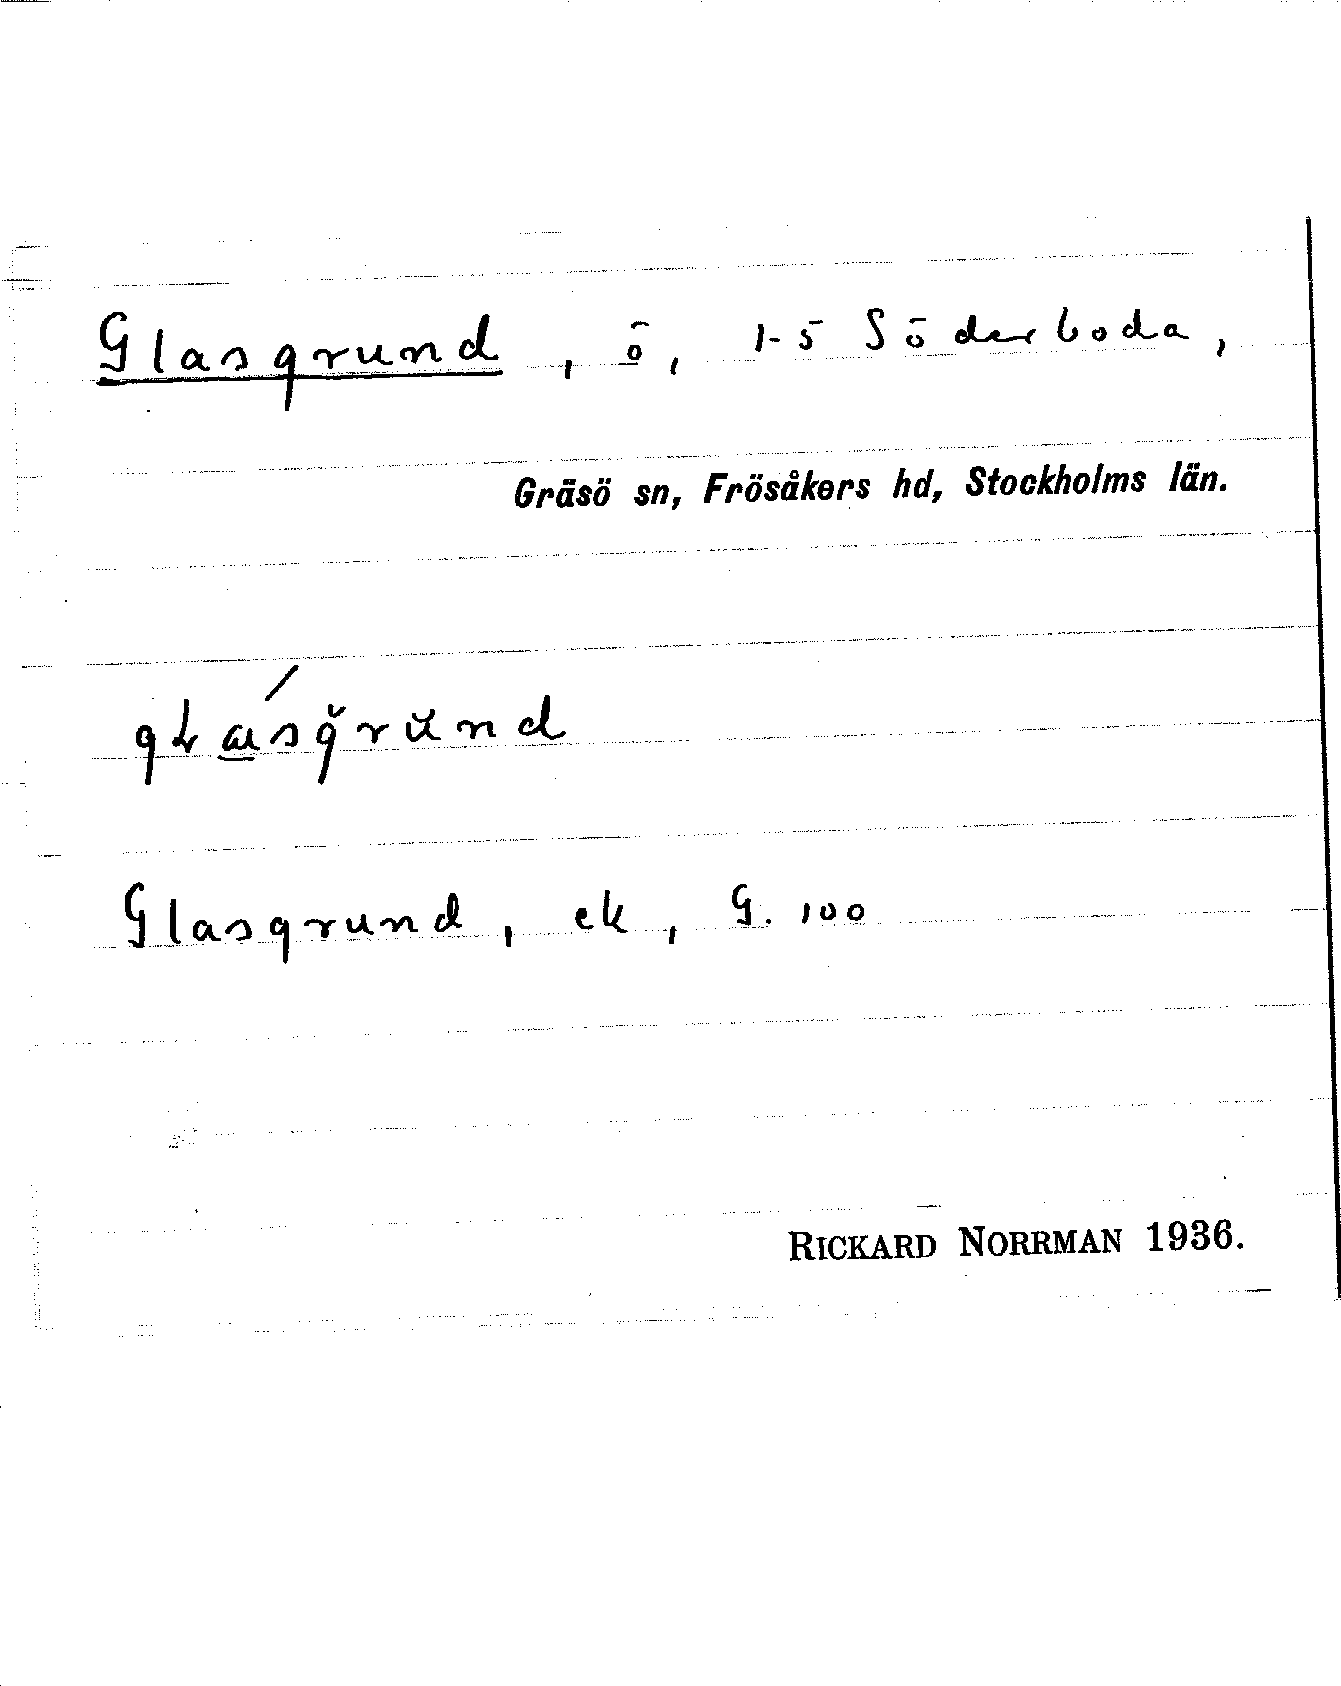 Glasgrund, ö, 1-5 Söderboda,
Gräsö sn, Frösåkers hd, Stockholms län.
Glasgrund, ek, G. 100
RICKARD NORRMAN 1936.